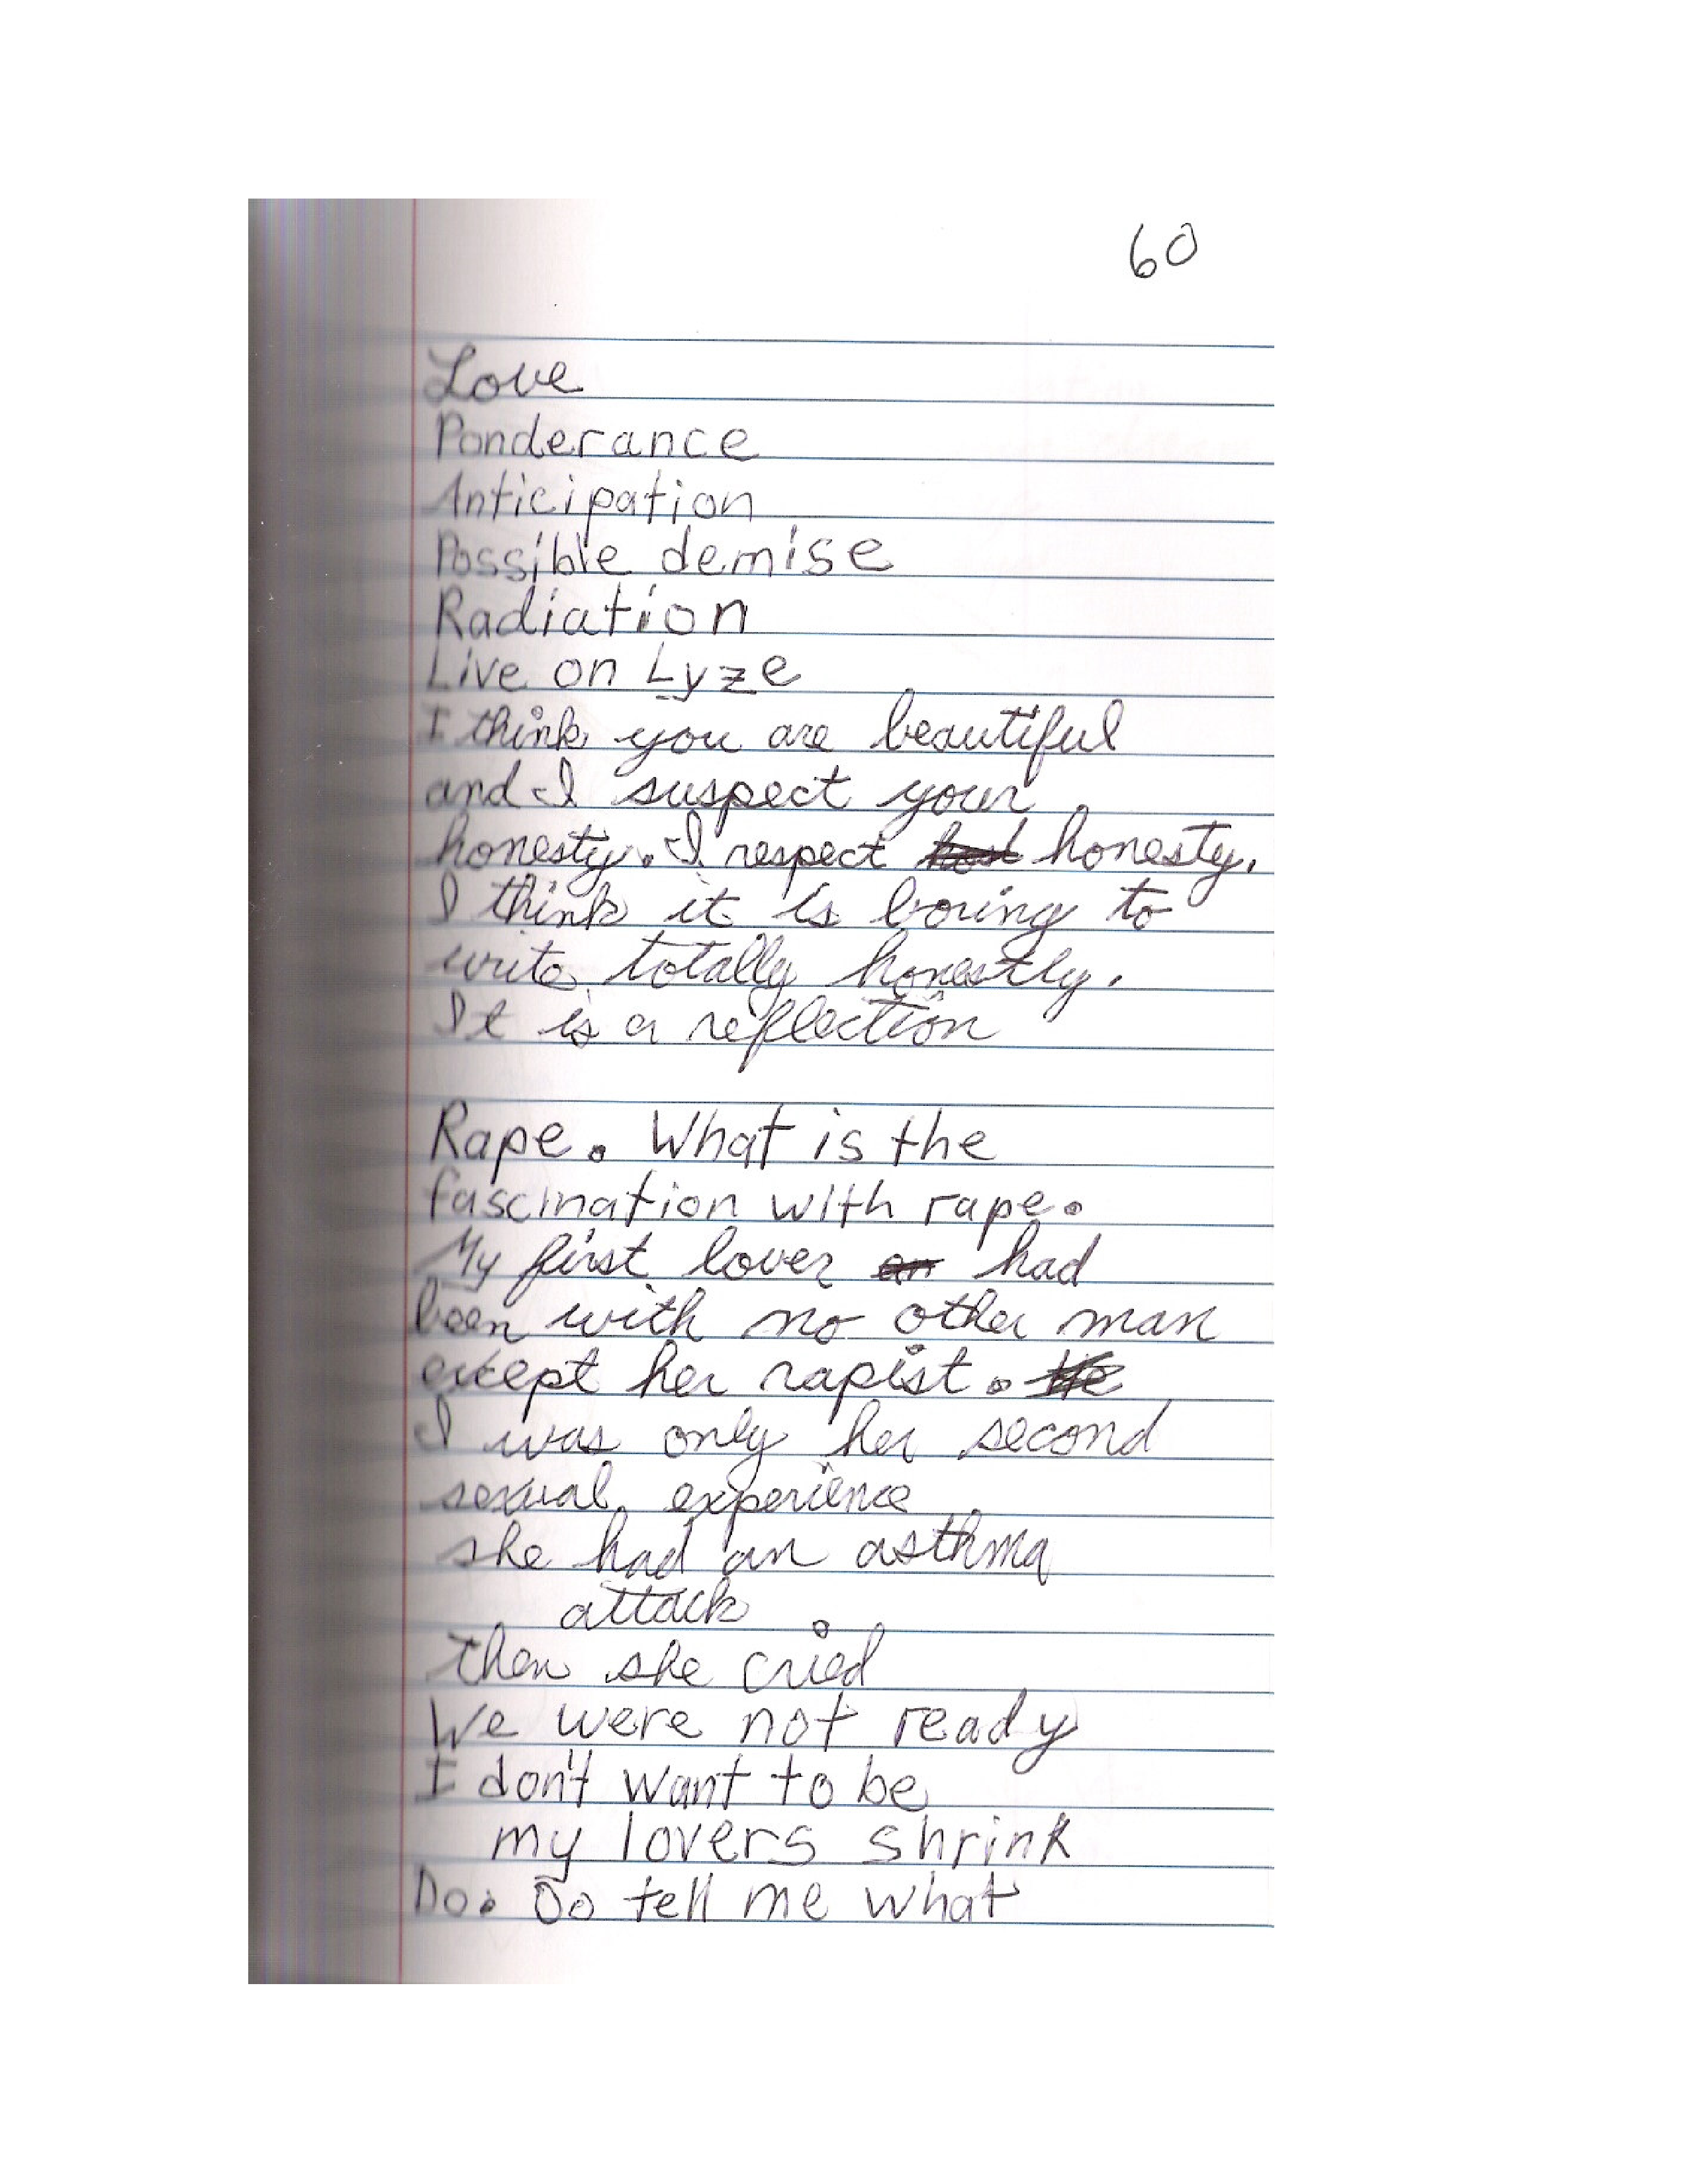 60
Love
Ponderance
Anticipation
Possible demise
Radiation
Live on Lyze
I think you are beautiful
and I suspect your
honesty. I respect honesty.
I think it is boring to
write totally honestly.
It is a reflection
Rape. What is the
fascination with rape.
My first lover had
been with no other man
except her rapist.
I was only her second
sexual experience
she had an asthma
attack
then she cried
We were not ready
I don't want to be
my lovers shrink
Do. Do tell me what